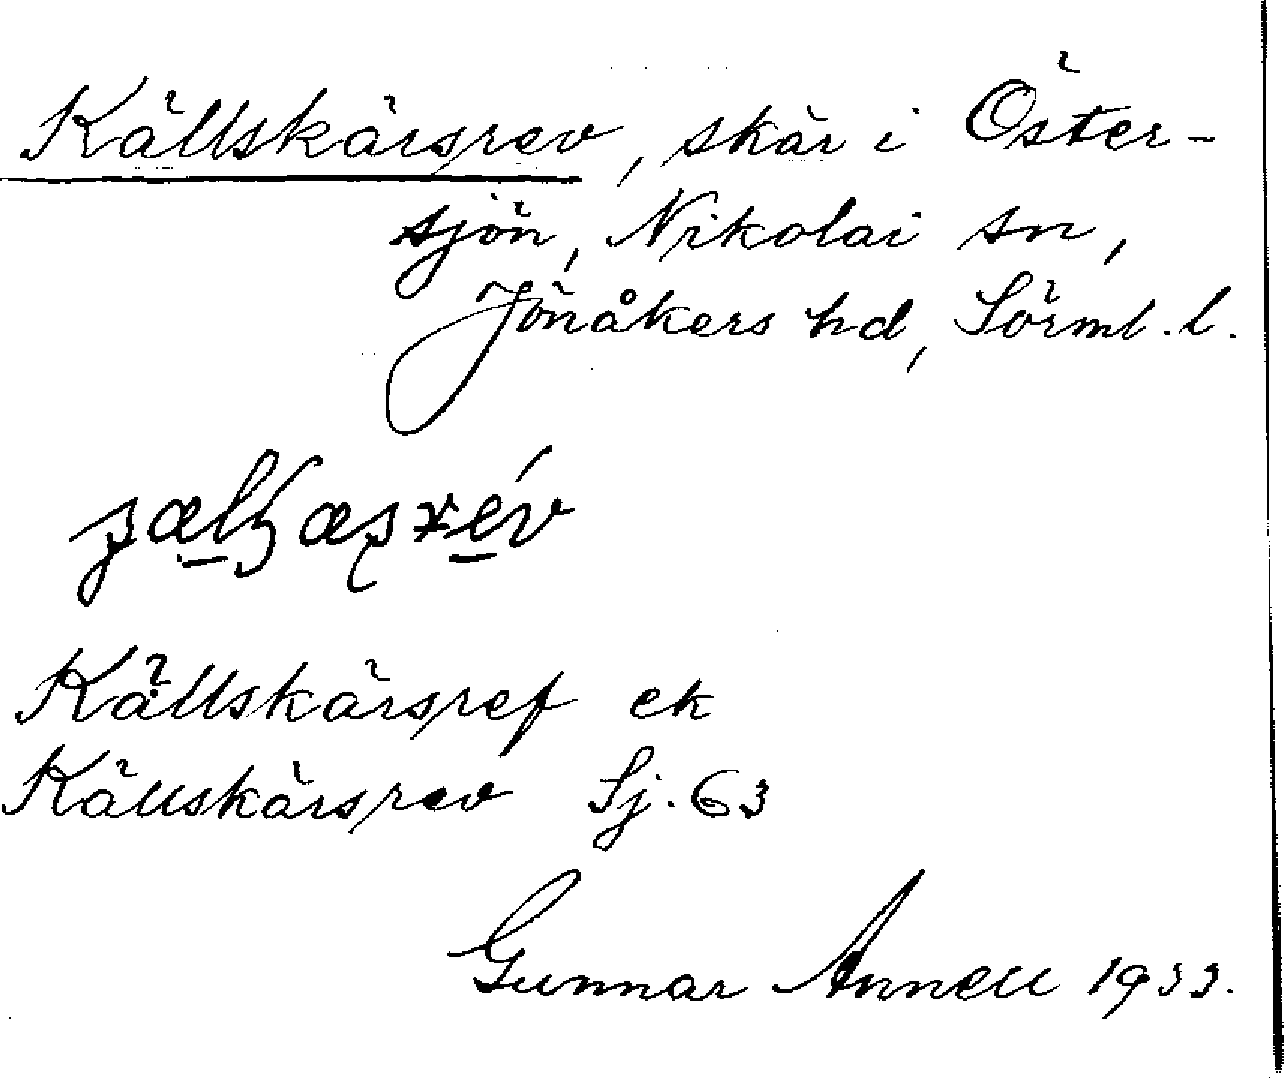 Källskärsrev, skär i Öster-
sjön, Nikolai sn,
Jönåkers hd, Sörml. l.
Källskärsref ek
Källskärsrev Sj. 63
Gunnar Annell 1933.